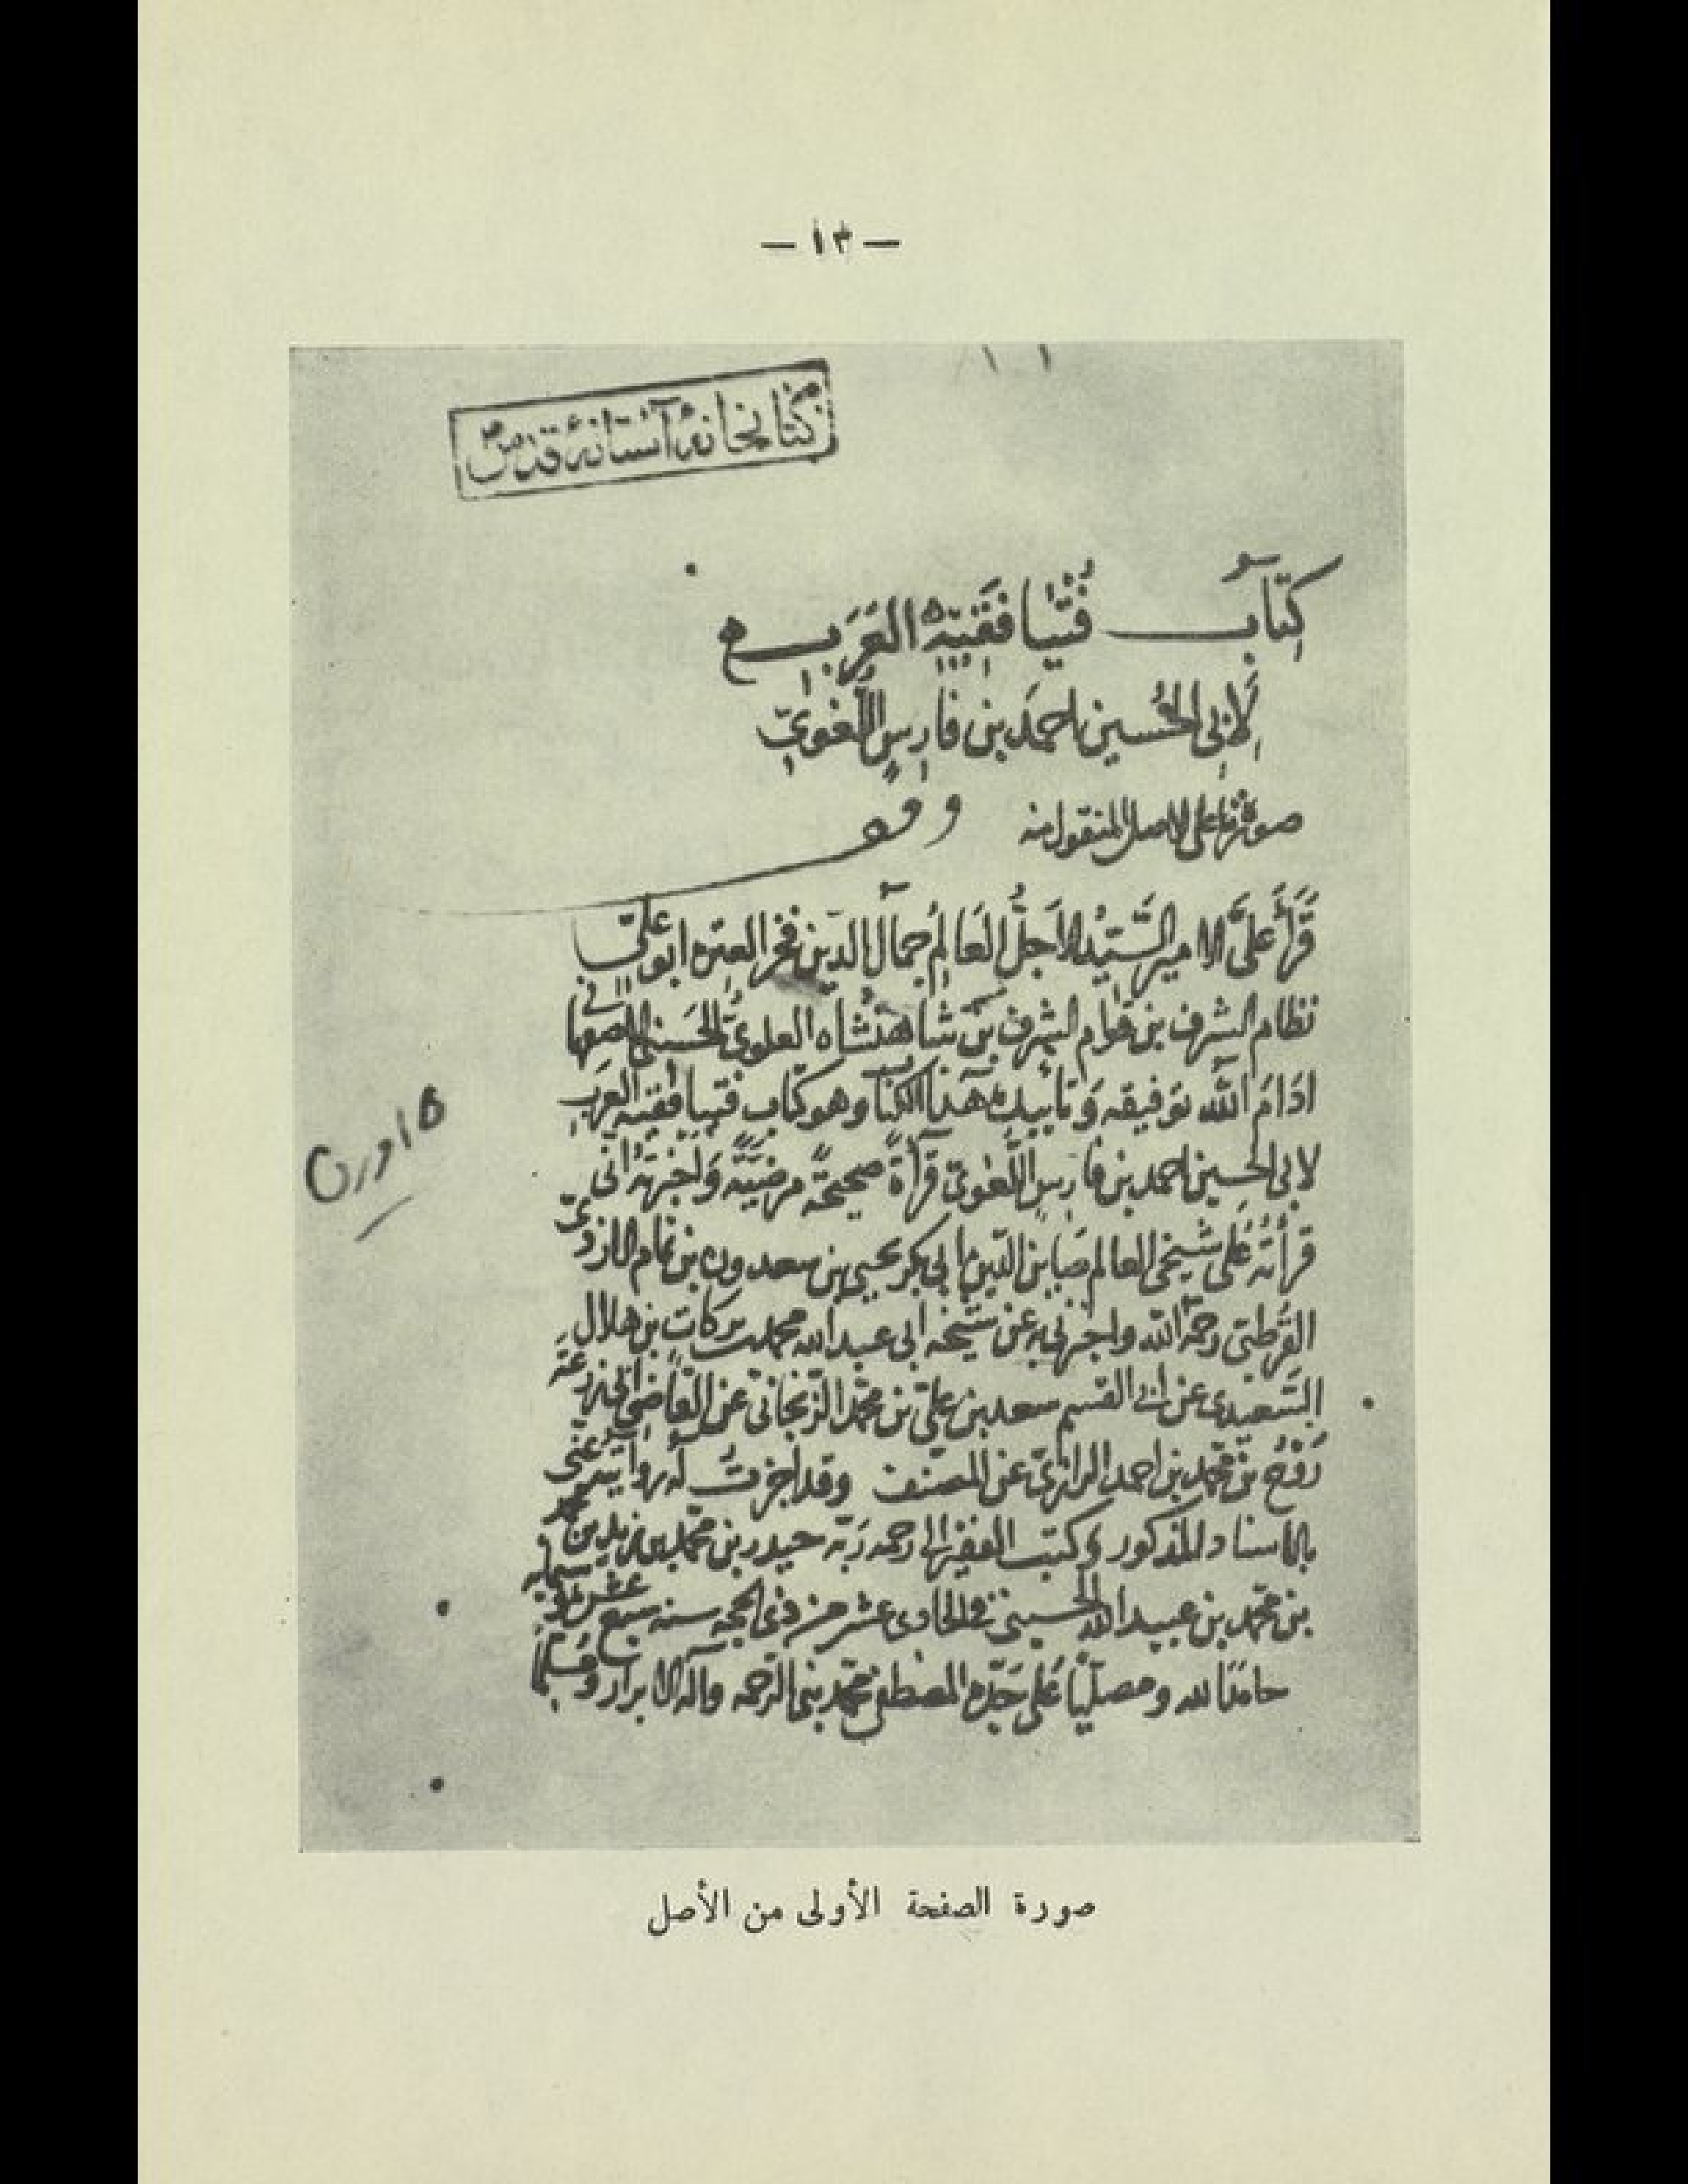 — ١٣ —
كتابخانهٔ آستانهٔ قدس
كِتَابُ فُتْيَا فَقِيْهِ العَرَبِ
لِأَبِي الحُسين احمَد بن فارِسٍ اللُّغَوِيّ
صورة ما على الاصل المنقول منه
وقف
قَرَأَ عَلَيَّ الامير السَّيِّدُ الاَجَلُّ العَالِمُ جمالُ الدين فخر العتره ابو علي
نظام الشرف بن قوام الشرف بن شاهنشاه العلويّ الحَسَني الاصفهاني
ادَامَ الله توفيقه وَتاييدهُ هذا الكتاب وهو كتاب فتيا فقيه العَرَب
لابي الحسين احمد بن فارِسٍ اللُّغويّ قرآءةً صحيحةً مرضيَّةً وَاخبرتهُ اني
قرأتهُ عَلى شيخي العالم صَاين الدّين ابي بكر يحيى بن سعدون بن تمام الازديّ
القُرطبيّ رحمه الله واخبرني به عن شيخه ابي عبد الله محمد بن بركاتِ بن هلال
السَّعيدي عن ابي القسم سعد بن علي بن محمد الزَّنجانيّ عن القَاضي ابي زرعَةَ
رَوْح بن محمد بن احمد الرازيّ عن المصنف وقد اجزتُ لهُ روايتهُ عنّي
بالاسناد المذكور وكتب الفقير الى رحمه رَبّه حيدر بن محمد بن زيد بن محمد
بن محمد بن عبيد الله الحسيني في الحادي عشر من ذي الحجه سنه سبع عشرة وستمايه
حامدًا لله ومصلّيًا عَلى جَدِّه المصطفى محمد نبي الرحمه وآله الابرار ومُسَلِّمًا
١٥ ورق
صورة الصفحة الأولى من الأصل